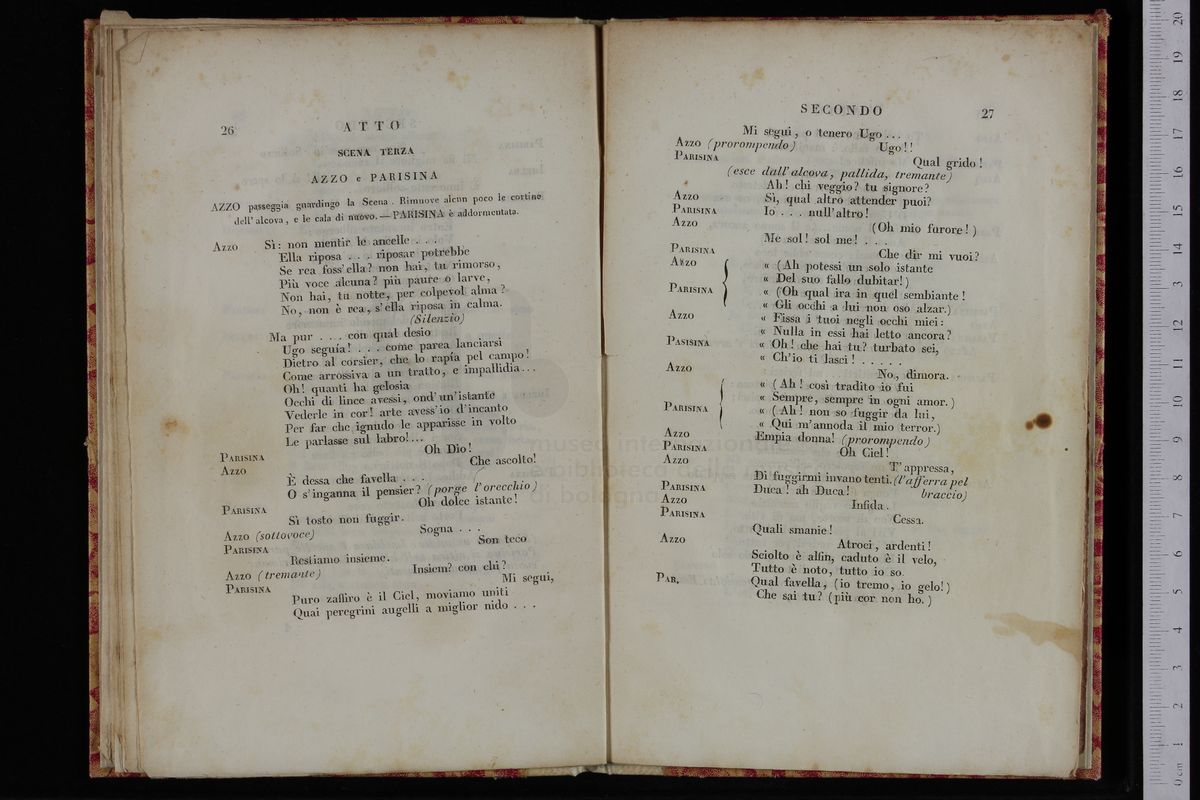 26
ATTO
SCENA TERZA
AZZO e PARISINA
AZZO passeggia guardingo la Scena. Rimuove alcun poco le cortine
dell'alcova, e le cala di nuovo. — PARISINA è addormentata.
AZZO Sì: non mentir le ancelle . . .
Ella riposa . . . riposar potrebbe
Se rea foss'ella? non hai, tu rimorso,
Più voce alcuna? più paure o larve,
Non hai, tu notte, per colpevol alma?
No, non è rea, s'ella riposa in calma.
(Silenzio)
Ma pur . . . con qual desio
Ugo seguía! . . . come parea lanciarsi
Dietro al corsier, che lo rapía pel campo!
Come arrossiva a un tratto, e impallidía...
Oh! quanti ha gelosia
Occhi di lince avessi, ond'un'istante
Vederle in cor! arte avess'io d'incanto
Per far che ignudo le apparisse in volto
Le parlasse sul labro!...
PARISINA Oh Dio!
AZZO Che ascolto!
È dessa che favella . . .
O s'inganna il pensier? (porge l'orecchio)
PARISINA Oh dolce istante!
Sì tosto non fuggir.
AZZO (sottovoce) Sogna . . .
PARISINA Son teco
Restiamo insieme.
AZZO (tremante) Insiem? con chi?
PARISINA Mi segui,
Puro zaffiro è il Ciel, moviamo uniti
Quai peregrini augelli a miglior nido . . .
SECONDO
27
Mi segui, o tenero Ugo . . .
AZZO (prorompendo) Ugo!!
PARISINA Qual grido!
(esce dall'alcova, pallida, tremante)
Ah! chi veggio? tu signore?
AZZO Sì, qual altro attender puoi?
PARISINA Io . . . null'altro!
AZZO (Oh mio furore!)
Me sol! sol me! . . .
PARISINA Che dir mi vuoi?
AZZO « (Ah potessi un solo istante
« Del suo fallo dubitar!)
PARISINA « (Oh qual ira in quel sembiante!
« Gli occhi a lui non oso alzar.)
AZZO « Fissa i tuoi negli occhi miei:
« Nulla in essi hai letto ancora?
PASISINA « Oh! che hai tu? turbato sei,
« Ch'io ti lasci! . . . . .
AZZO No, dimora.
« (Ah! così tradito io fui
« Sempre, sempre in ogni amor.)
PARISINA « (Ah! non so fuggir da lui,
« Qui m'annoda il mio terror.)
AZZO Empia donna! (prorompendo)
PARISINA Oh Ciel!
AZZO T'appressa,
Di fuggirmi invano tenti. (l'afferra pel
PARISINA Duca! ah Duca! braccio)
AZZO Infida.
PARISINA Cessa.
Quali smanie!
AZZO Atroci, ardenti!
Sciolto è alfin, caduto è il velo,
Tutto è noto, tutto io so.
PAR. Qual favella, (io tremo, io gelo!)
Che sai tu? (più cor non ho.)
museo internazionale
e biblioteca della musica
di bologna
0 cm 1 2 3 4 5 6 7 8 9 10 11 12 13 14 15 16 17 18 19 20